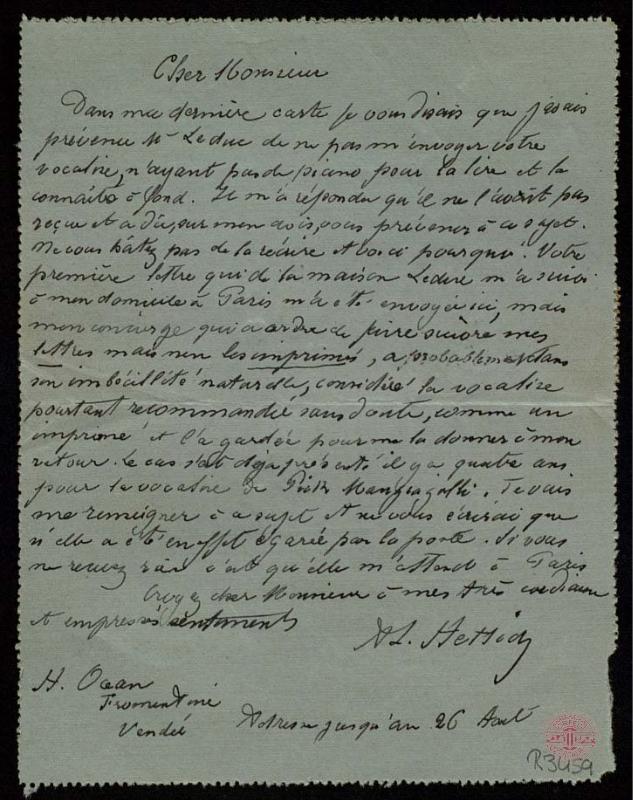 Cher Monsieur
Dans ma dernière carte je vous disais que j'avais
prévenu Mr Leduc de ne pas m'envoyer votre
vocalise, n'ayant pas de piano pour la lire et la
connaître à fond. Il m'a répondu qu'il ne l'avait pas
reçue et a dû, sur mon avis, vous prévenir à ce sujet.
Ne vous hâtez pas de la réécrire et voici pourquoi. Votre
première lettre qui de la maison Leduc m'a suivi
à mon domicile à Paris m'a été envoyée ici, mais
mon concierge qui a ordre de faire suivre mes
lettres mais non les imprimés, a probablement dans
son imbécillité naturelle, considéré la vocalise
pourtant recommandée sans doute, comme un
imprimé et l'a gardée pour me la donner à mon
retour. Le cas s'est déjà présenté il y a quatre ans
pour la vocalise de Pick Mangiagalli. Je vais
me renseigner à ce sujet et ne vous écrirai que
si elle a été en effet égarée par la poste. Si vous
ne recevez rien c'est qu'elle m'attend à Paris
Croyez cher Monsieur à mes très cordiaux
et empressés sentiments
AL. Hettich
H. Océan
Fromentine
Vendée
Adresse jusqu'au 26 Août
R3459